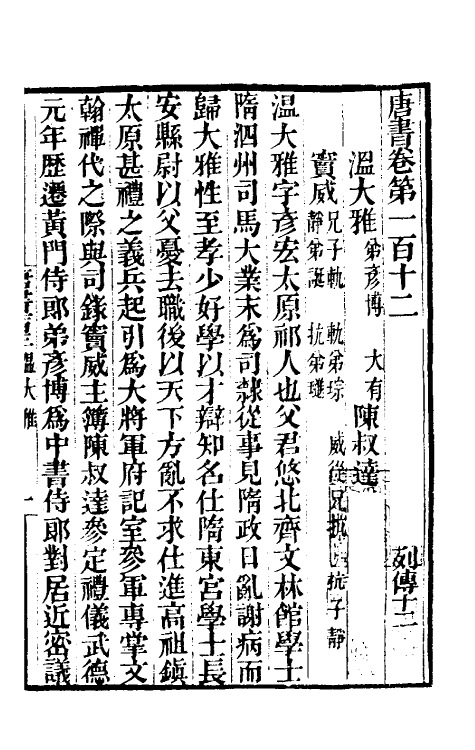 唐書卷第一百十二　列傳十二
溫大雅 弟彥博 大有 陳叔達
竇威 兄子軌 軌弟琮 威從兄抗 抗子靜
靜弟誕 抗弟璡
溫大雅字彥宏太原祁人也父君悠北齊文林館學士
隋泗州司馬大業末爲司隸從事見隋政日亂謝病而
歸大雅性至孝少好學以才辯知名仕隋東宮學士長
安縣尉以父憂去職後以天下方亂不求仕進高祖鎮
太原甚禮之義兵起引爲大將軍府記室參軍專掌文
翰禪代之際與司錄竇威主簿陳叔達參定禮儀武德
元年歷遷黃門侍郎弟彥博爲中書侍郎對居近密議
溫大雅 一